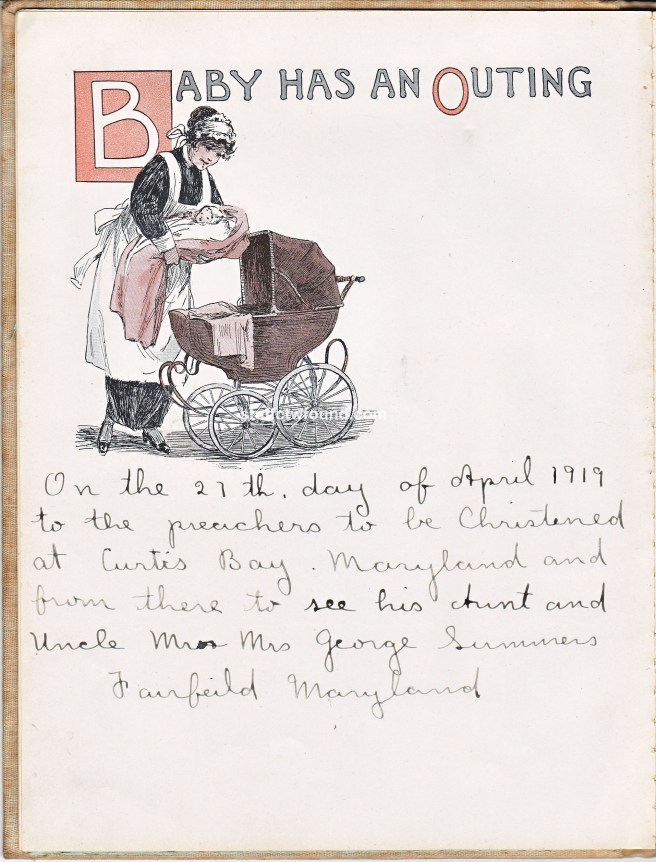 BABY HAS AN OUTING
On the 27th. day of April 1919
to the preachers to be Christened
at Curtis Bay. Maryland and
from there to see his Aunt and
Uncle Mr Mrs George Summers
Fairfeild Maryland